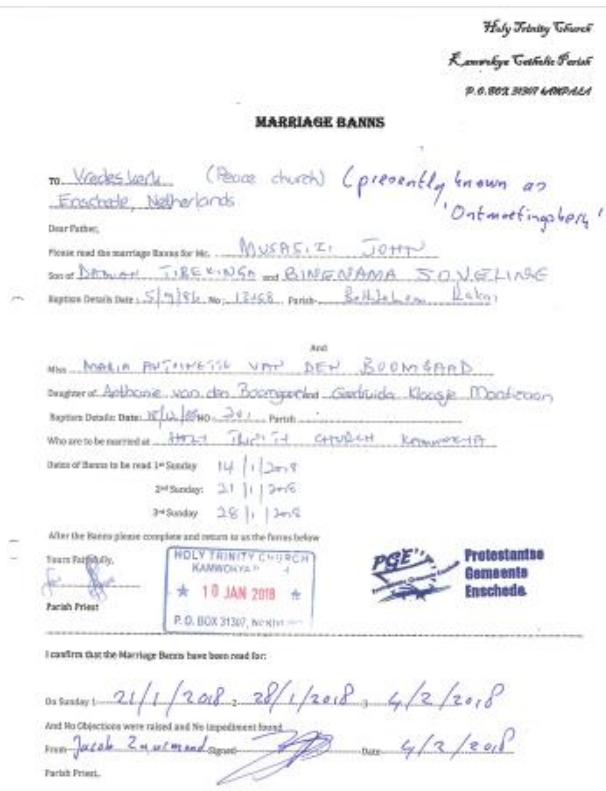 Holy Trinity Church
Kamwokya Catholic Parish
P.O. BOX 31307 KAMPALA
MARRIAGE BANNS
TO Vredeskerk (Peace church) (presently known as
Enschede, Netherlands 'Ontmoetingskerk'
Dear Father,
Please read the marriage Banns for Mr. MUSASIZI JOHN
Son of DAMIAN TIBEKINGA and BINENAMA
Baptism Details Date: No: Parish Bethlehem Rakai
And
Miss MARIA ANTOINETTE VAN DEN BOOMGAARD
Daughter of Anthonie van den Boomgaard and Gertruida Klaasje
Baptism Details: Date: NO Parish
Who are to be married at HOLY TRINITY CHURCH KAMWOKYA
Dates of Banns to be read 1st Sunday 14/1/2018
2nd Sunday: 21/1/2018
3rd Sunday 28/1/2018
After the Banns please complete and return to us the forms below
Yours Faithfully,
Parish Priest
HOLY TRINITY CHURCH
KAMWOKYA
10 JAN 2018
P.O. BOX 31307,
PGE
Protestantse
Gemeente
Enschede
I confirm that the Marriage Banns have been read for:
On Sunday 1 21/1/2018 2 28/1/2018 3 4/2/2018
And No Objections were raised and No impediment found
From Jacob Signed Date 4/2/2018
Parish Priest,